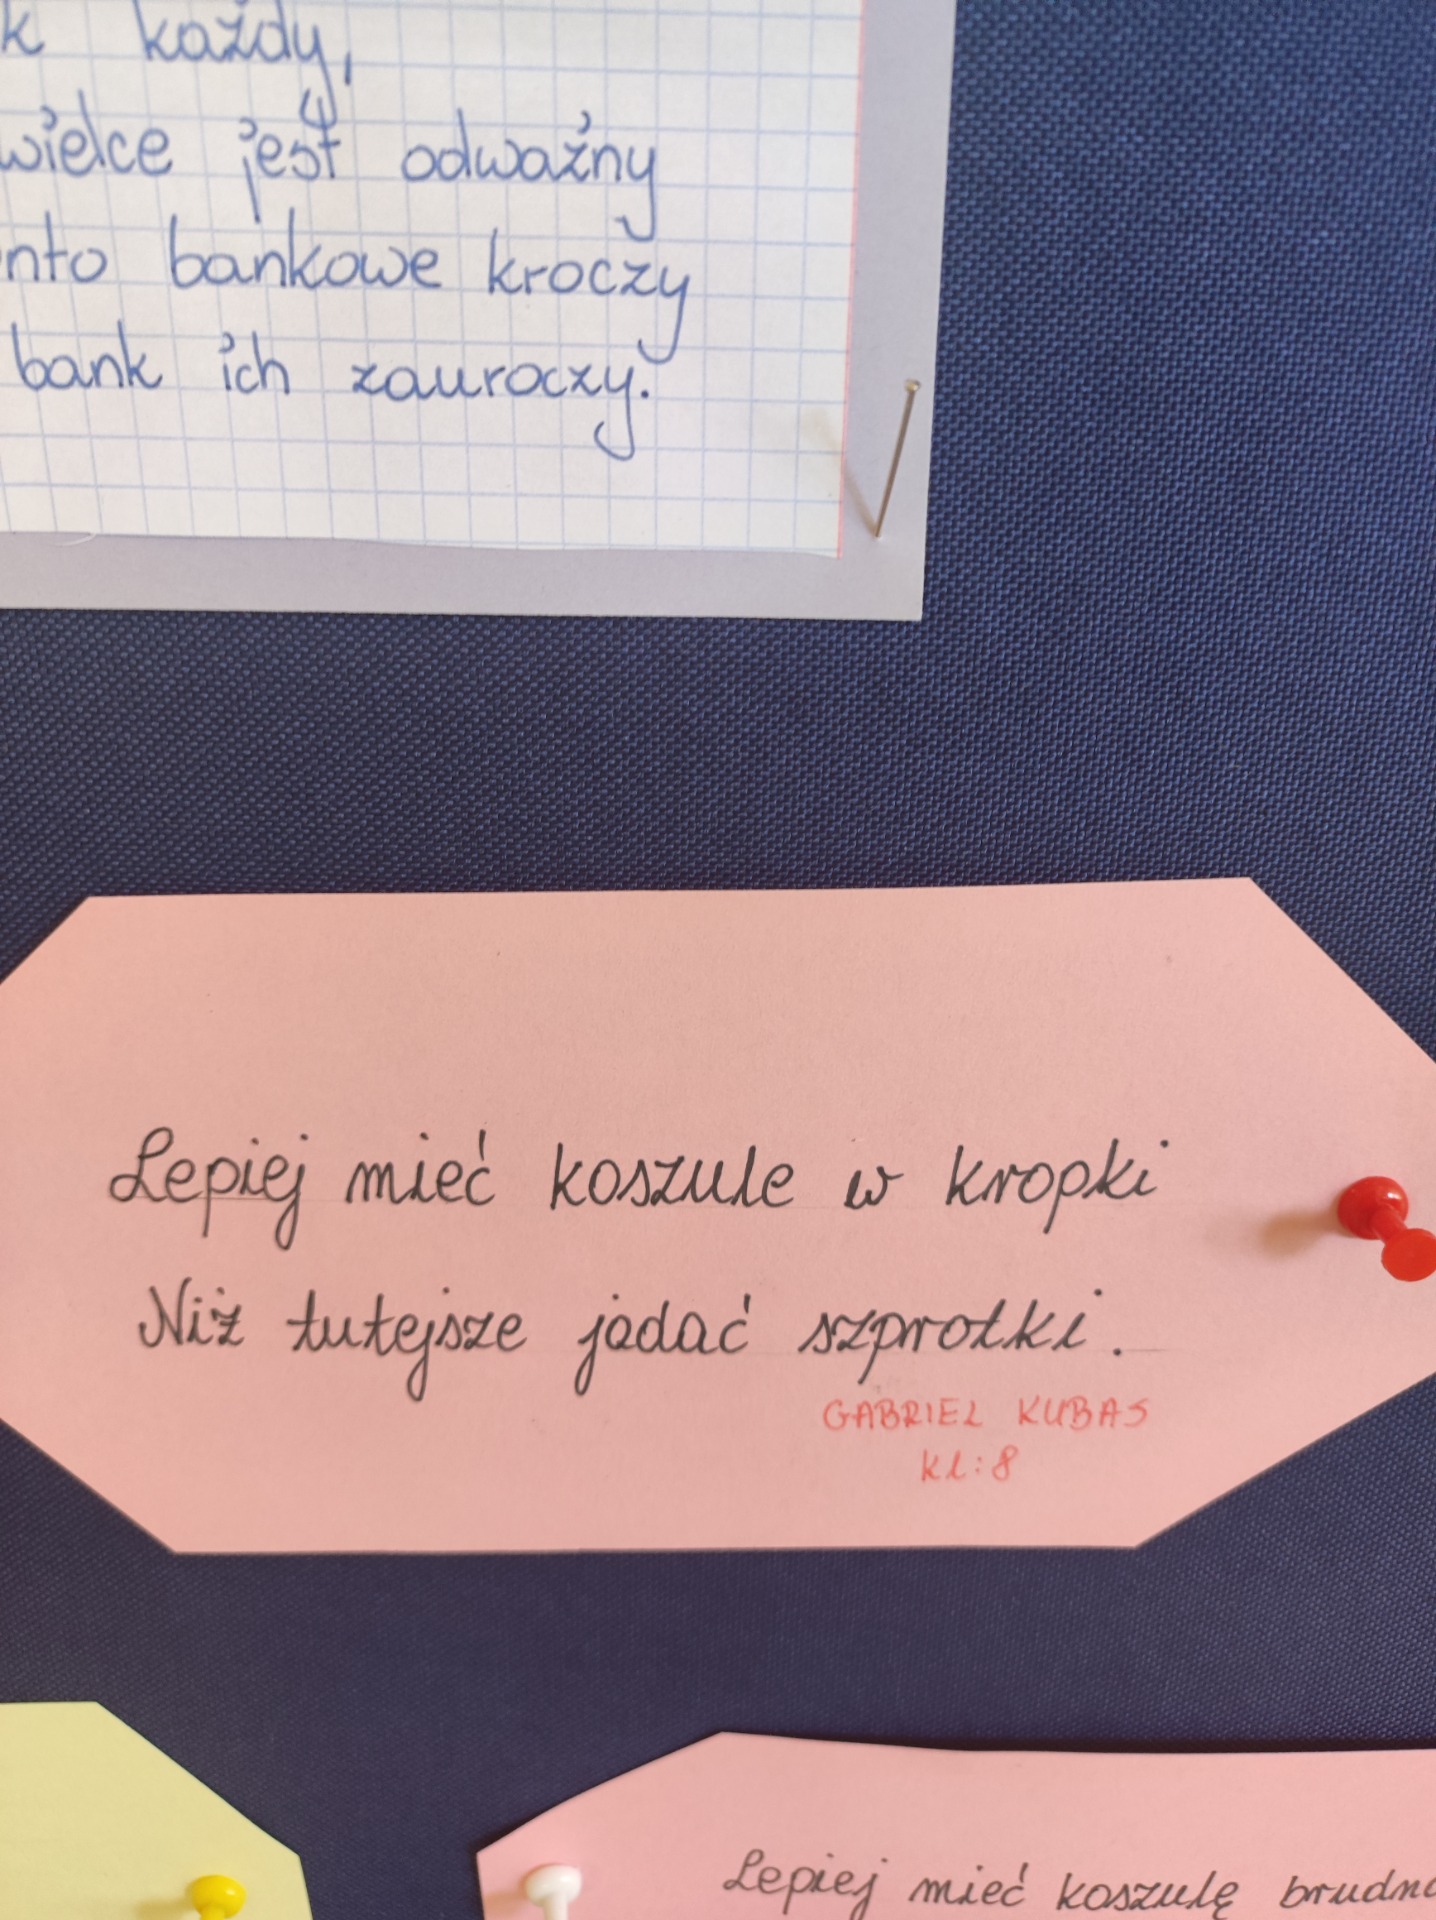 każdy,
wielce jest odważny
bankowe kroczy
bank ich zauroczy.
Lepiej mieć koszule w kropki
Niż tutejsze jadać szprotki.
GABRIEL KUBAS
kl:8
Lepiej mieć koszulę